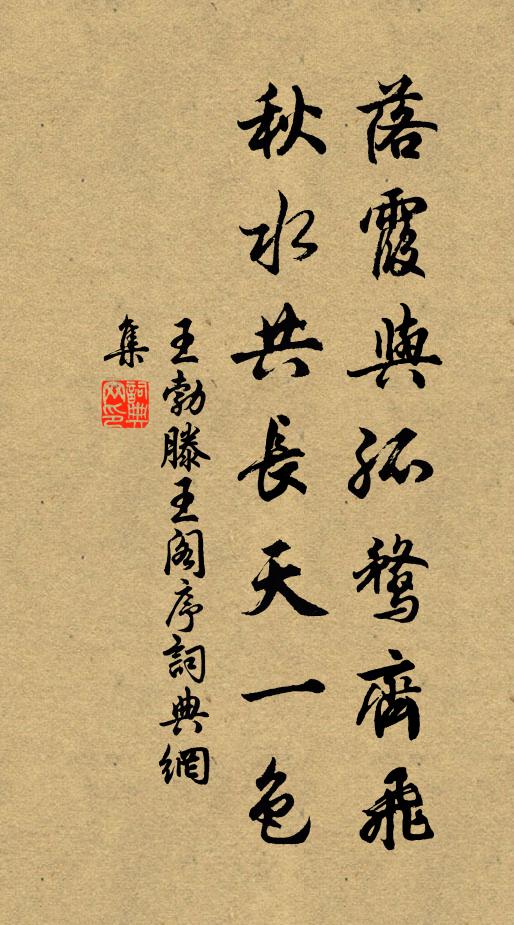 落霞與孤鶩齊飛
秋水共長天一色
王勃滕王阁序詞典網
集
詞典网印